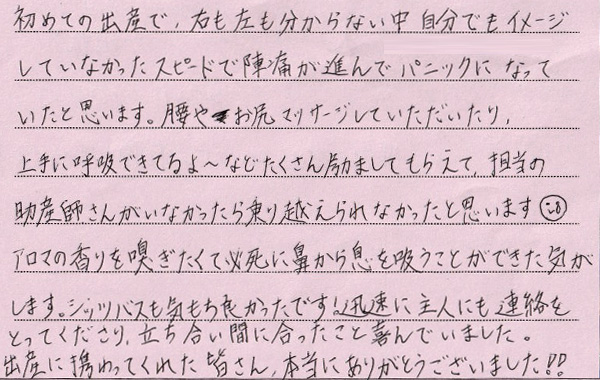 初めての出産で、右も左も分からない中自分でもイメージ
していなかったスピードで陣痛が進んでパニックになって
いたと思います。腰やお尻マッサージしていただいたり、
上手に呼吸できてるよ〜などたくさん励ましてもらえて、担当の
助産師さんがいなかったら乗り越えられなかったと思います
アロマの香りを嗅ぎたくて必死に鼻から息を吸うことができた気が
します。シッツバスも気もち良かったです!迅速に主人にも連絡を
とってくださり、立ち合い間に合ったこと喜んでいました。
出産に携わってくれた皆さん、本当にありがとうございました!!